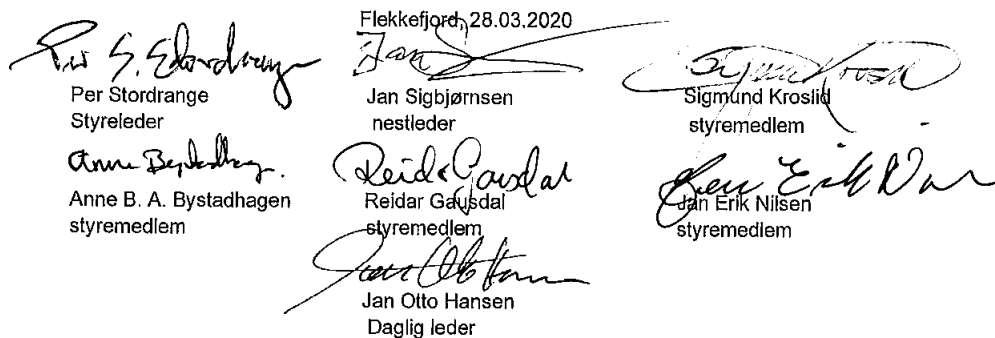 Flekkefjord, 28.03.2020
Per Stordrange
Styreleder
Jan Sigbjørnsen
nestleder
Sigmund Kroslid
styremedlem
Anne B. A. Bystadhagen
styremedlem
Reidar Gausdal
Reidar Gausdal
styremedlem
Jan Erik Nilsen
styremedlem
Jan Otto Hansen
Daglig leder